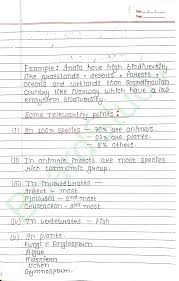 Example: India have high biodiversity
like grasslands, deserts, forests,
oceans and wetlands than Scandinavian
country like Norway which have a low
ecosystem biodiversity
Some noteworthy points:
(i) In 100% species - 70% are animals.
22% are plants.
8% others.
(ii) In animals insects are most species
rich taxonomic group.
(iii) In invertebrates -
Insect = most
Mollusca = 2nd most
Crustacean - 3rd most
(iv) In vertebrates - fish
(v) In plants -
Fungi = Angiosperm
Algae
Mosses
Lichen
Gymnosperm